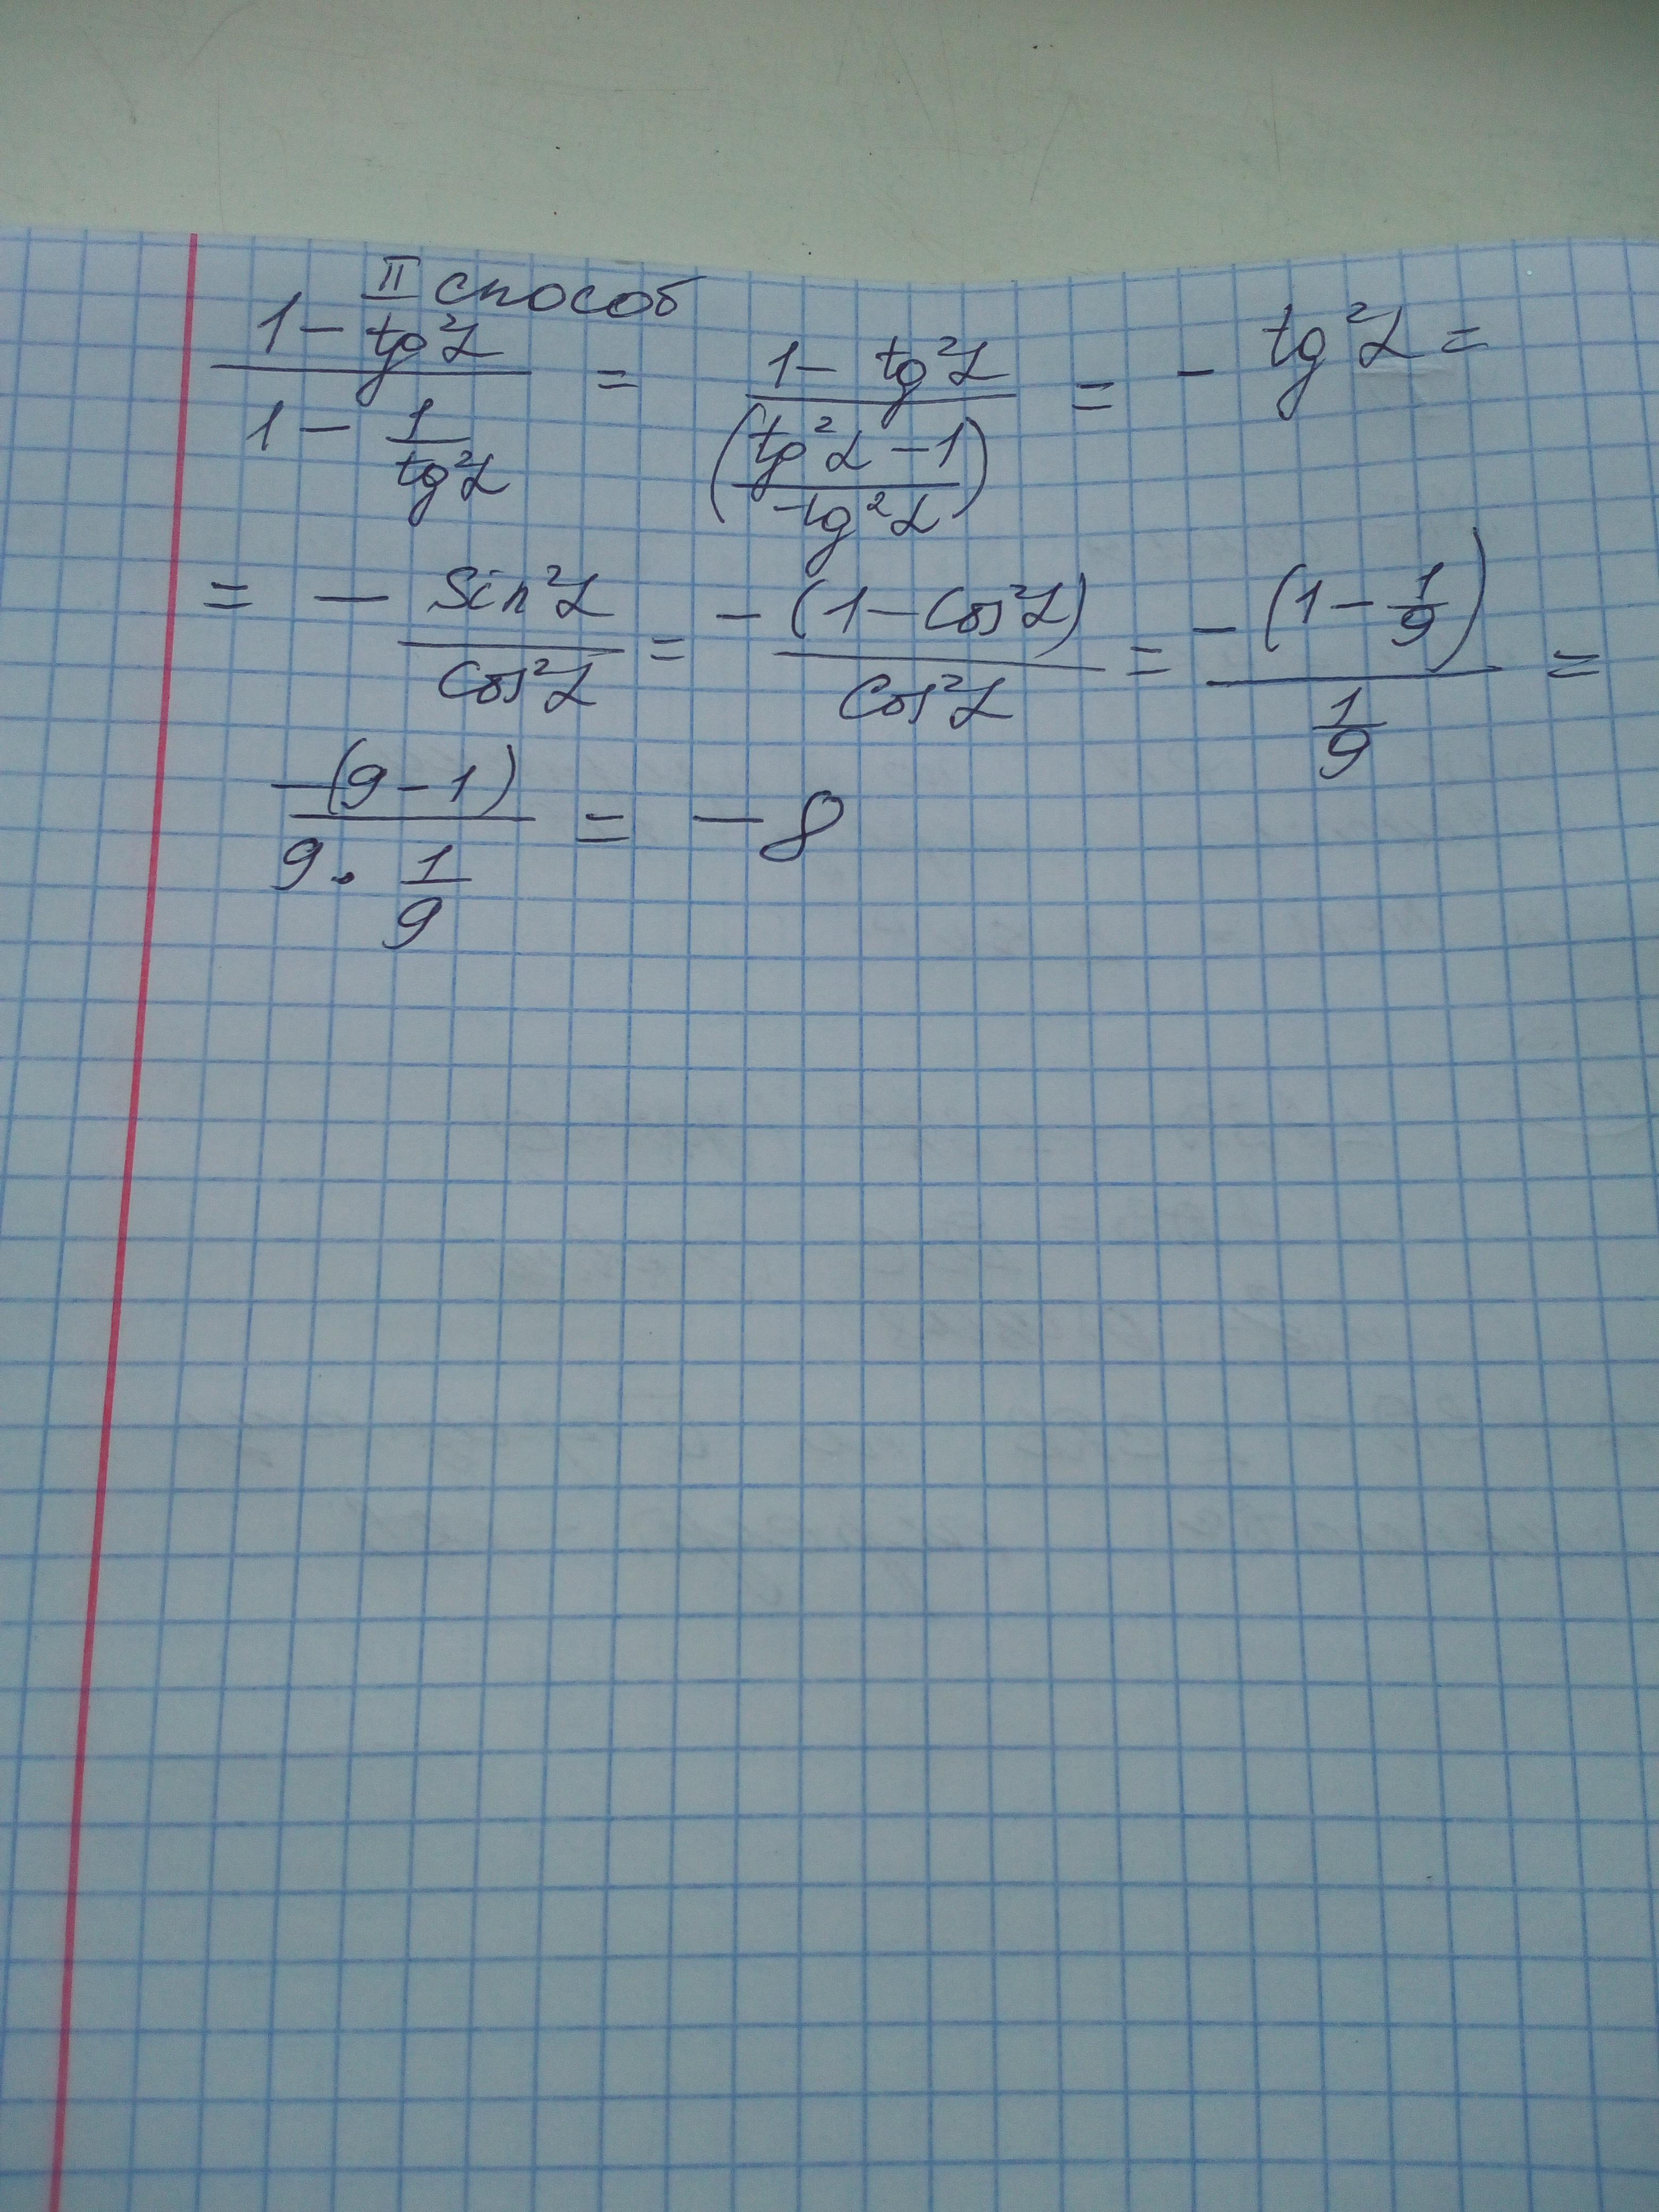 II способ
(1 - tg²α)/(1 - 1/tg²α) = (1 - tg²α)/((tg²α - 1)/tg²α) = - tg²α =
= - sin²α/cos²α = -(1 - cos²α)/cos²α = -(1 - 1/9)/(1/9) =
-(9 - 1)/(9 · 1/9) = -8